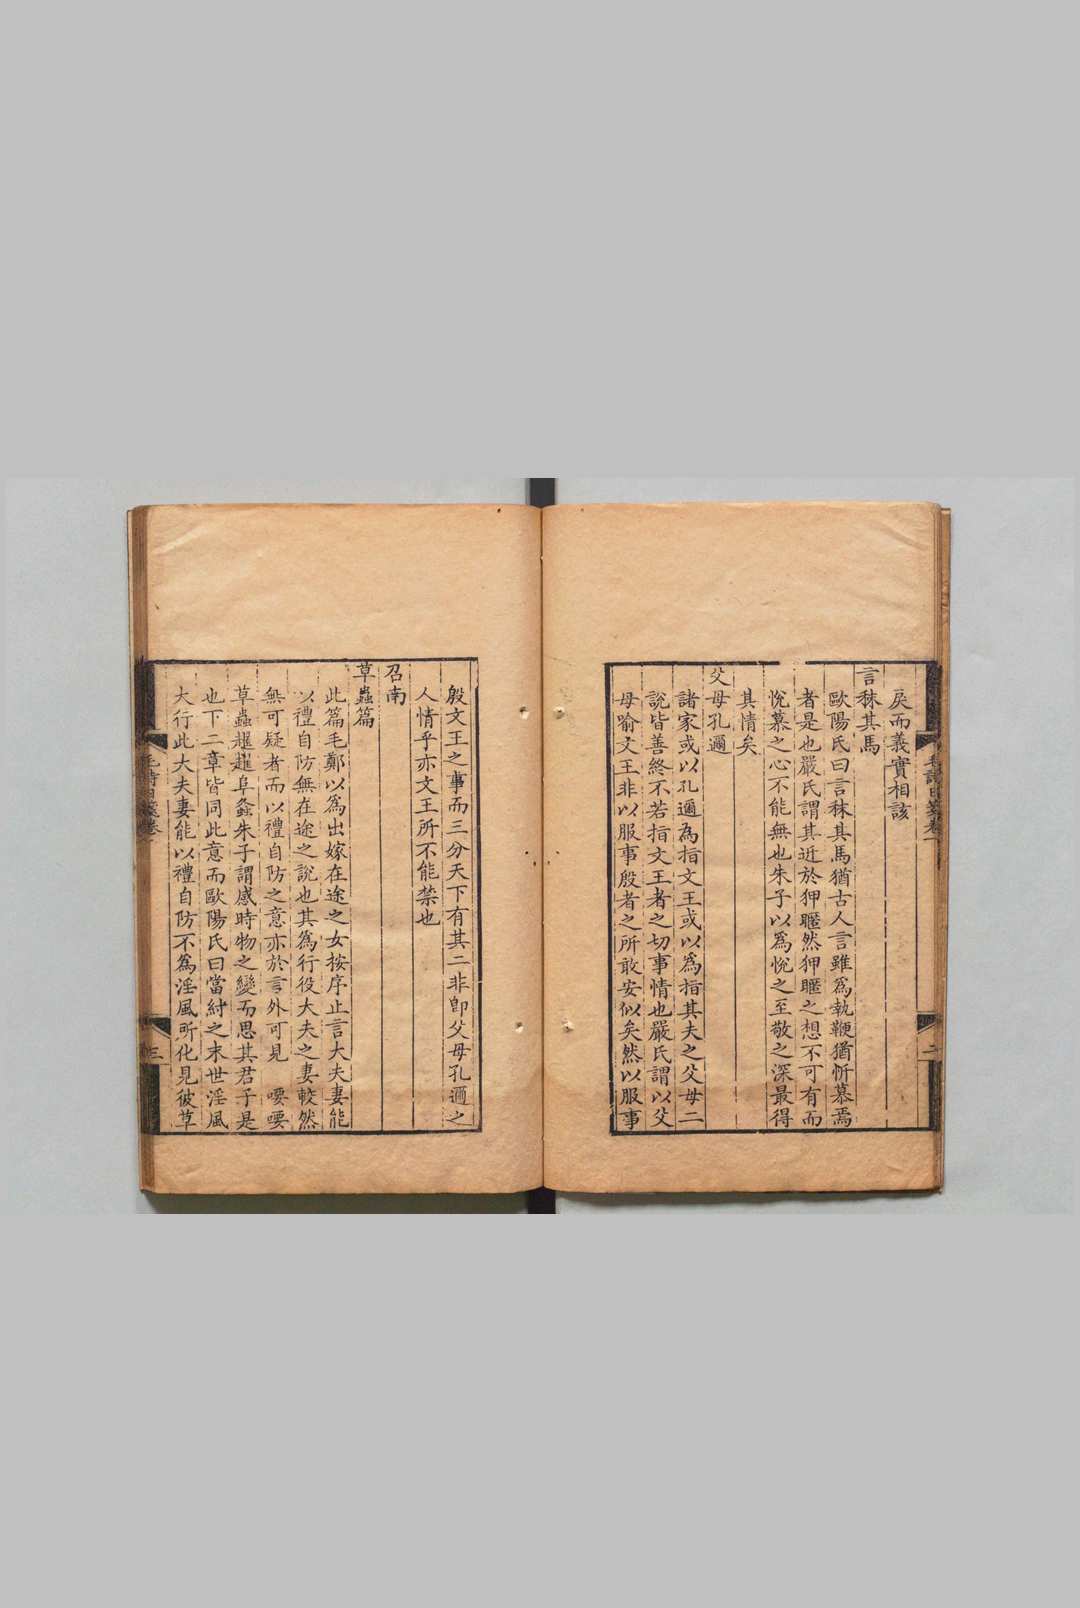 戾而義實相該
言秣其馬
歐陽氏曰言秣其馬猶古人言雖爲執鞭猶忻慕焉
者是也嚴氏謂其近於狎暱然狎暱之想不可有而
悅慕之心不能無也朱子以爲悅之至敬之深最得
其情矣
父母孔邇
諸家或以孔邇為指文王或以爲指其夫之父母二
說皆善終不若指文王者之切事情也嚴氏謂以父
母喻文王非以服事殷者之所敢安似矣然以服事
殷文王之事而三分天下有其二非卽父母孔邇之
人情乎亦文王所不能禁也
召南
草蟲篇
此篇毛鄭以爲出嫁在途之女按序止言大夫妻能
以禮自防無在途之說也其爲行役大夫之妻較然
無可疑者而以禮自防之意亦於言外可見　喓喓
草蟲趯趯阜螽朱子謂感時物之變而思其君子是
也下二章皆同此意而歐陽氏曰當紂之末世淫風
大行此大夫妻能以禮自防不爲淫風所化見彼草
三